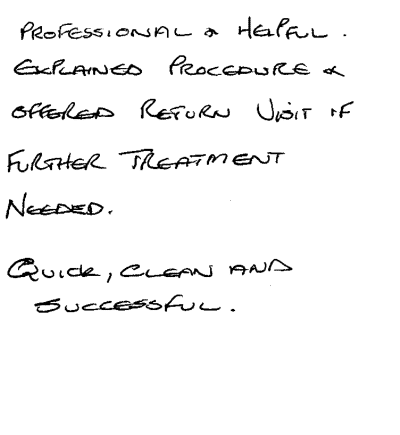 PROFESSIONAL & HELPFUL.
EXPLAINED PROCEDURE &
OFFERED RETURN VISIT IF
FURTHER TREATMENT
NEEDED.
QUICK, CLEAN AND
SUCCESSFUL.